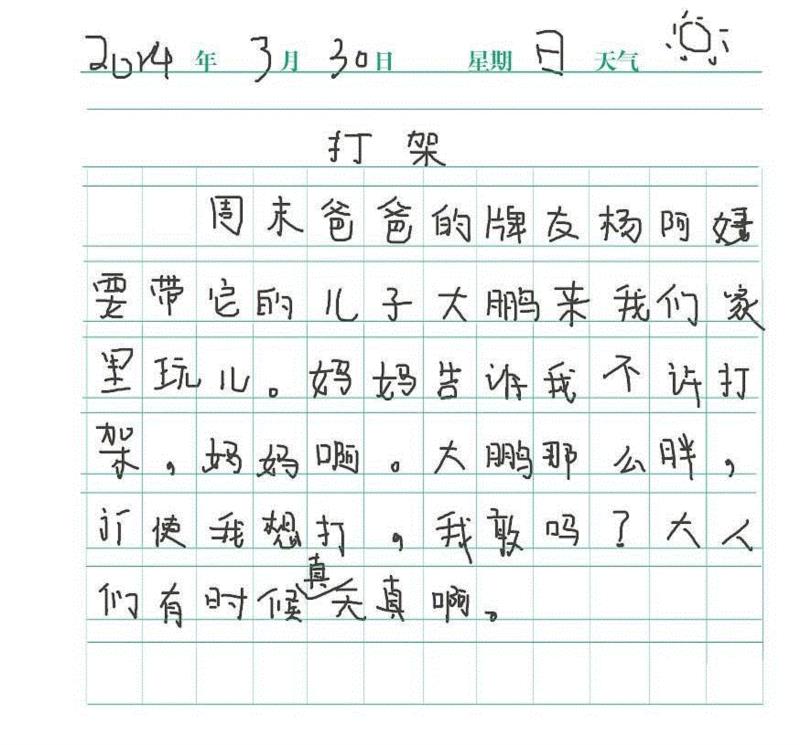 2014年3月30日 星期日 天气
打架
周末爸爸的牌友杨阿姨
要带它的儿子大鹏来我们家
里玩儿。妈妈告诉我不许打
架，妈妈啊。大鹏那么胖，
使我想打，我敢吗？大人
们有时候真天真啊。